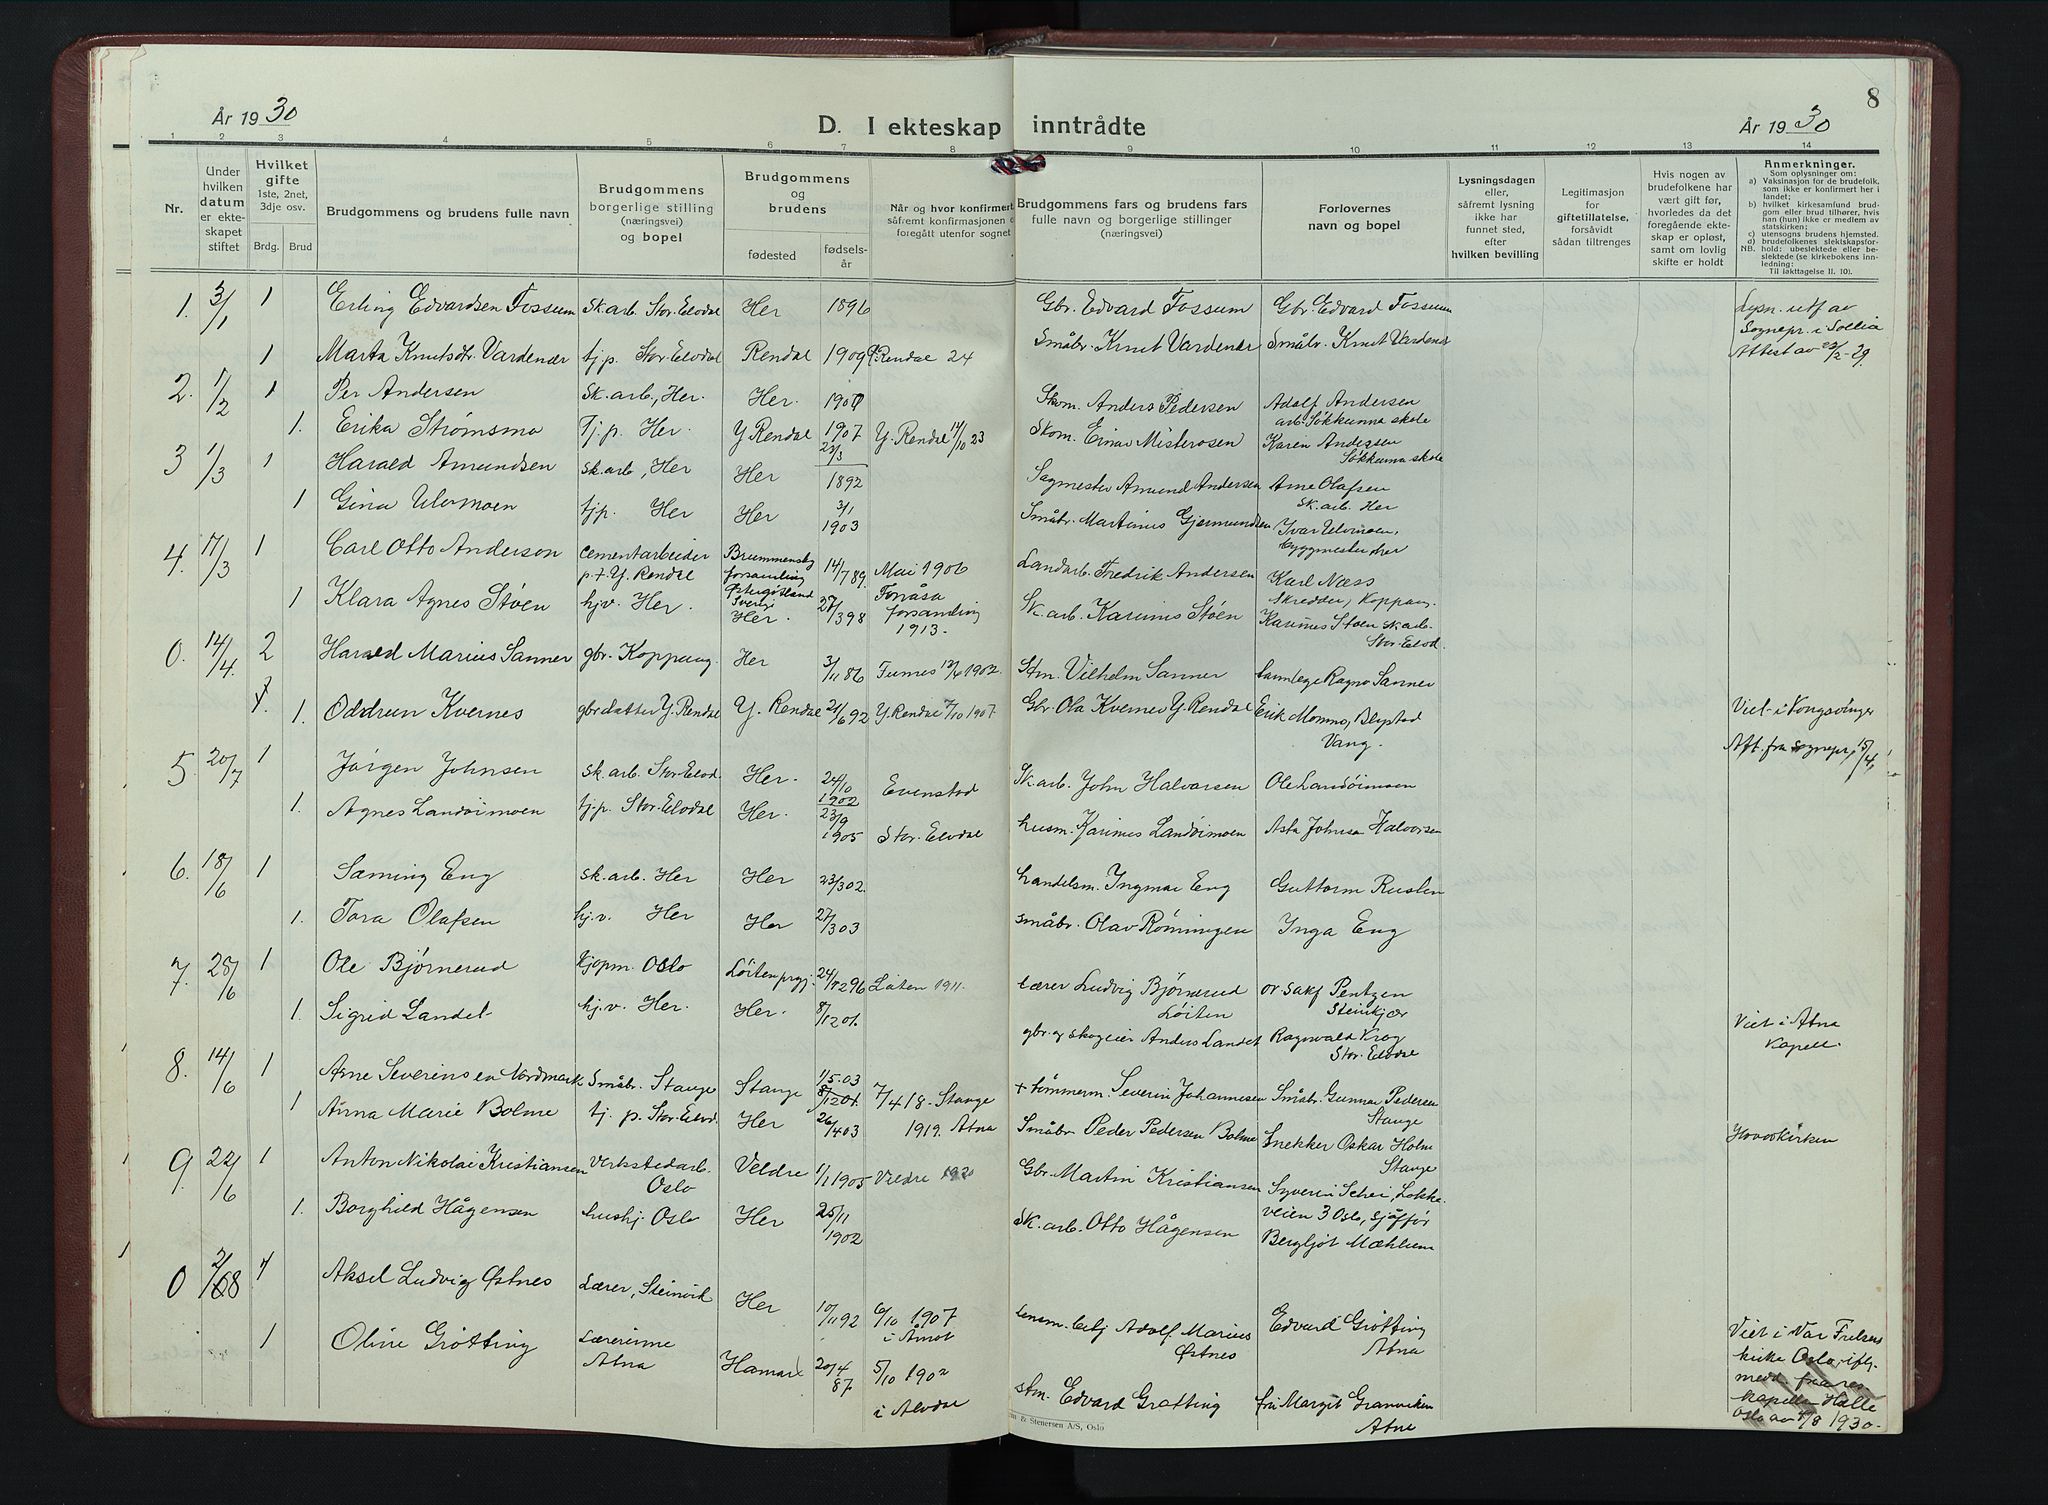 8
År 1930
D. I ekteskap inntrådte
År 1930
1 2 3 4 5 6 7 8 9 10 11 12 13 14
Nr.
Under hvilken datum er ekteskapet stiftet
Hvilket gifte 1ste, 2net, 3dje osv.
Brdg. Brud
Brudgommens og brudens fulle navn
Brudgommens borgerlige stilling (næringsvei) og bopel
Brudgommens og brudens
fødested
fødselsår
Når og hvor konfirmert
såfremt konfirmasjonen
foregått utenfor sognet
Brudgommens fars og brudens fars
fulle navn og borgerlige stillinger
(næringsvei)
Forlovernes
navn og bopel
Lysningsdagen
eller,
såfremt lysning
ikke har
funnet sted,
efter
hvilken bevilling
Legitimasjon
for
giftetillatelse,
forsåvidt
sådan tiltrenges
Hvis nogen av
brudefolkene har
vært gift før,
hvorledes da det
foregående ekte-
skap er opløst,
samt om lovlig
skifte er holdt
Anmerkninger.
Som oplysninger om:
a) Vaksinasjon for de brudefolk,
som ikke er konfirmert her i
landet;
b) hvilket kirkesamfund brud-
gom eller brud tilhører, hvis
han (hun) ikke er medlem av
statskirken;
c) utensogns brudens hjemsted.
d) brudefolkenes slektskapsfor-
NB. hold: ubeslektede eller be-
slektede (se kirkebokens inn-
ledning:
Til iakttagelse II. 10).
1. 3/1 1 Erling Edvardsen Fossum sk.arb. Stor-Elvdal Her 1896 Gbr. Edvard Fossum Gbr. Edvard Fossum Lysn. utf av
Sognepr. i Sollia
1 Marta Knutsdtr. Vardenær tj.p. Stor-Elvdal Rendal 1909 Rendal 24 Småbr. Knut Vardenær Småbr. Knut Vardenær Attest av 23/2-29.
2. 1/2 1 Per Andersen sk.arb., Her. Her. Skom. Anders Pedersen Adolf Andersen
arb. Søkkunna skole
1. Erika Strømsmo Tj.p. Her. Y Rendal 1907 Y. Rendal 14/10 23 Skom. Einar Misterosen Karen Andersen
Søkkunna skole
3 1/3 1 Harald Amundsen sk.arb, Her Her 1892 Sagmester Amund Andersen Arne Olafsen
sk.arb. Her
1 Gina Ulvmoen tjp. Her Her 3/1 1903 Småbr. Martinus Gjermundsen Ivar Ulvmoen,
byggmester, her
4. 17/3 1 Carl Otto Anderson cementarbeider
p.t. Y. Rendal Brummensby
forsamling
Østergøtland
Sverige 14/7 89. Mai 1906
Tonåsa
forsamling Landarb. Fredrik Andersen Karl Næss
Skredder, Koppang.
1 Klara Agnes Støen hjv. Her. Her. 27/3 98 1913. Sk. arb. Karinus Støen Karinus Støen sk.arb.
Stor-Elvd.
0. 14/4. 2 Harald Marius Sanner gbr. Koppang. Her 3/11 86 Furnes 1902. Stm. Vilhelm Sanner tannlege Ragnv Sanner
1. Oddrun Kvernes gbrdatter Y. Rendal Y. Rendal 21/6 92 Y. Rendal 7/10 1907 Gbr. Ola Kvernes Y. Rendal Erik Momms, Blystad
Vang. Viet i Kongsvinger
Att. fra sognepr. 15/4,
5. 20/7 1 Jørgen Johnsen sk.arb. Stor-Elvd. Her. 24/10 1902 Evenstad Sk.arb. John Halvorsen Ole Landøimoen
1. Agnes Landøimoen tj.p. Stor-Elvdal Her. 23/9 1905 Stor-Elvdal husm. Karinus Landøimoen Asta Johnsen Halvorsen
6. 18/6 1 Sæming Eng sk.arb. Her Her 23/3 02. handelsm. Ingmar Eng Guttorm Ruslen
1. Tora Olafsen hj.v. Her Her 27/3 03 småbr. Olav Rønningen Inga Eng
7. 28/6 1 Ole Bjørnerud kjøpm. Oslo Løiten prgj. 24/12 96 Løten 1911. Lærer Ludvig Bjørnerud
Løiten or. sakf Pentzen
Steinkjær
1. Sigrid Landet hj.v. Her. Her. 8/12 01. gbr. og skogeier Anders Landet Ragnvald Krog
Stor-Elvdal Viet i Atna
Kapell.
8. 14/6 1 Arne Severinsen Nordmark Småbr. Stange Stange 1/5.03 7/4 18. Stange + tømmerm. Severin Johannesen Småbr. Gunnar Pedersen
Stange
1 Anna Marie Bolme tj. p. Stor-Elvd. Her 26/4 03 1919. Atna Småbr. Peder Pedersen Bolme Snekker Oskar Holm
Stange Hovedkirken
9. 22/6 1 Anton Nikolai Kristiansen verkstedarb.
Oslo Veldre 1/1 1905 Veldre 1920 Gbr. Martin Kristiansen Syverin Schei, Løkke-
veien 3 Oslo, sjåfør
1. Borghild Hågensen hushj. Oslo Her 25/11 1902 Sk. arb. Otto Hågensen Bergljot Mæhlum
0 2/8 1 Aksel Ludvig Østnes Lærer, Steinvik Her 10/11 92 6/10 1907
i Åmot lensm. betj Adolf Marius
Østnes Edvard Grøtting
Atna
1 Oline Grøtting Lærerinne
Atna Hamar 20/4 87 5/10 1902
i Alvdal stm. Edvard Grøtting frk Margit Granviken
Atna Viet i Vår Frelsers
kirke Oslo, ifly.
medd. fra res.
kapellan Halle
Oslo av 4/8 1930.
& Stenersen A/S, Oslo